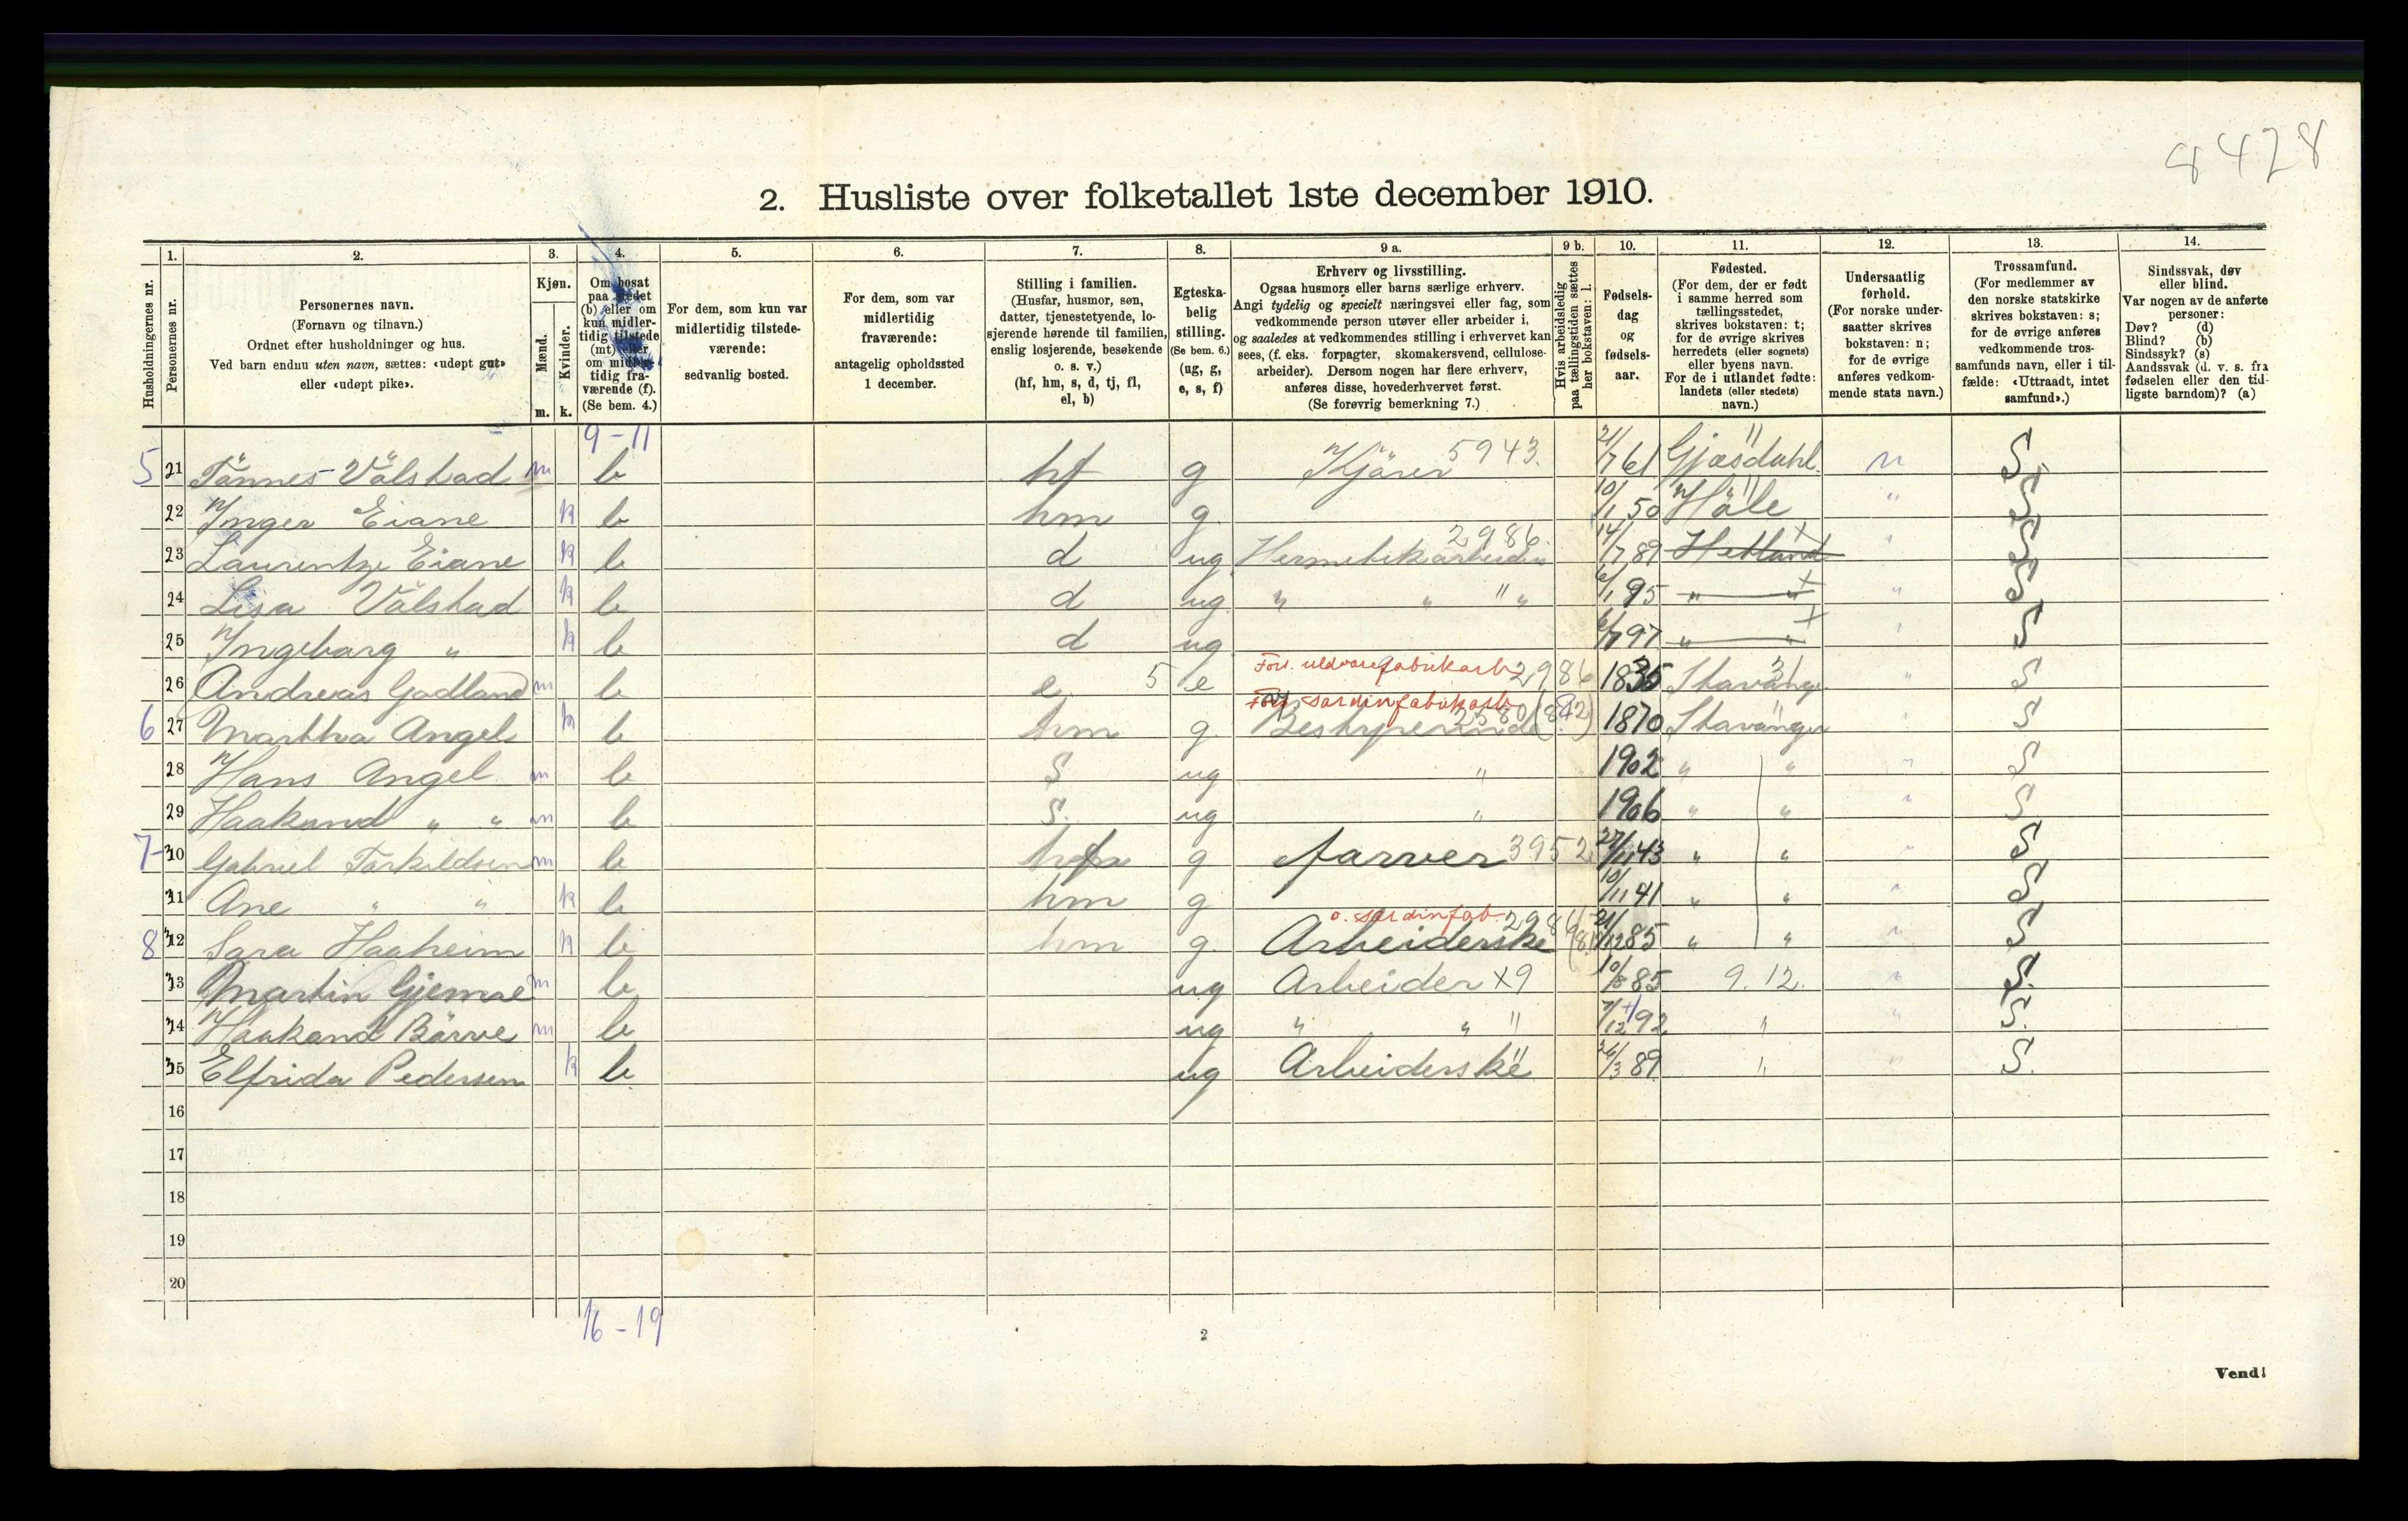 8428
2. Husliste over folketallet 1ste december 1910.
Husholdningernes nr.
1. Personernes nr.
2. Personernes navn.
(Fornavn og tilnavn.)
Ordnet efter husholdninger og hus.
Ved barn endnu uten navn, sættes: «udøpt gut»
eller «udøpt pike».
3. Kjøn.
Mænd. m.
Kvinder. k.
4. Om bosat
paa stedet
(b) eller om
kun midler-
tidig tilstede
(mt) eller
om midler-
tidig fra-
værende (f).
(Se bem. 4.)
5. For dem, som kun var
midlertidig tilstede-
værende:
sedvanlig bosted.
6. For dem, som var
midlertidig
fraværende:
antagelig opholdssted
1 december.
7. Stilling i familien.
(Husfar, husmor, søn,
datter, tjenestetyende, lo-
sjerende hørende til familien,
enslig losjerende, besøkende
o. s. v.)
(hf, hm, s, d, tj, fl,
el, b)
8. Egteska-
belig
stilling.
(Se bem. 6.)
(ug, g,
e, s, f)
9 a. Erhverv og livsstilling.
Ogsaa husmors eller barns særlige erhverv.
Angi tydelig og specielt næringsvei eller fag, som
vedkommende person utøver eller arbeider i,
og saaledes at vedkommendes stilling i erhvervet kan
sees, (f. eks. forpagter, skomakersvend, cellulose-
arbeider). Dersom nogen har flere erhverv,
anføres disse, hovederhvervet først.
(Se forøvrig bemerkning 7.)
9 b. Hvis arbeidsledig
paa tællingstiden sættes
her bokstaven: l.
10. Fødsels-
dag
og
fødsels-
aar.
11. Fødested.
(For dem, der er født
i samme herred som
tællingsstedet,
skrives bokstaven: t;
for de øvrige skrives
herredets (eller sognets)
eller byens navn.
For de i utlandet fødte:
landets (eller stedets)
navn.)
12. Undersaatlig
forhold.
(For norske under-
saatter skrives
bokstaven: n;
for de øvrige
anføres vedkom-
mende stats navn.)
13. Trossamfund.
(For medlemmer av
den norske statskirke
skrives bokstaven: s;
for de øvrige anføres
vedkommende tros-
samfunds navn, eller i til-
fælde: «Uttraadt, intet
samfund».)
14. Sindssvak, døv
eller blind.
Var nogen av de anførte
personer:
Døv? (d)
Blind? (b)
Sindssyk? (s)
Aandssvak (d. v. s. fra
fødselen eller den tid-
ligste barndom)? (a)
9-11
5 21 Tønnes Vålstad m b hf g Kjører 5943. 21/7 61 Gjæsdahl n S
22 Inger Eiane k b hm g 10/1 50 Høle " S
2986.
23 Laurentze Eiane k b d ug 14/7 89 Hetland " S
24 Lisa Vålstad k b d ug " " " 6/1 95 " " " S
25 Ingeborg " k b d ug 97 " " " S
26 Andreas Godland m b e 5 e 2986 1835 " S
6 27 Marthva Angel k b hm g sardinfabrikarb 1870 Stavanger " S
28 Hans Angel m b S ug " 1902 " " " S
29 Haakand " " m b S. ug " 1906 " " " S
7 30 Gabriel Torkildsen m b g farver 3952 27/11 43 " " " S
31 Ane " " k b hm g 10/11 41 " " " S
o. sardinfab. 2986
8 32 Sara Haaheim k b hm g. Arbeiderske 21/12 85 " " " S
33 Martin Gjemre m b ug Arbeider X9 10/8 85 9. 12. " S.
34 Haakand Børve m b ug " " " 7/12 92 " " S.
35 Elfrida Pedersen k b ug Arbeiderske 26/3 89 " " S.
16
17
18
19
20
16-19
2
Vend!